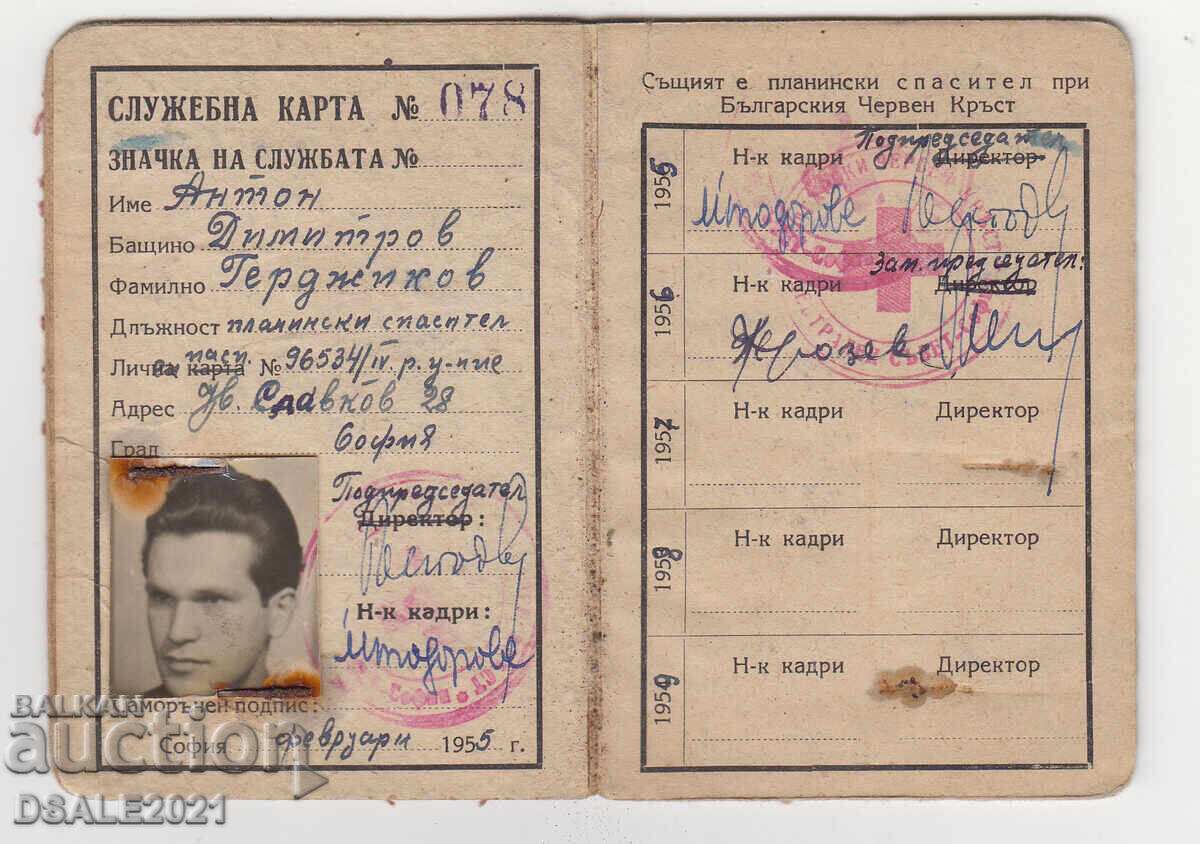 СЛУЖЕБНА КАРТА № 078
ЗНАЧКА НА СЛУЖБАТА №
Име Антон
Бащино Димитров
Фамилно Герджиков
Длъжност планински спасител
Лична карта пасп. № 96534/IV р. у-ние
Адрес Ив. Славков 28
Град София
Подпредседател
Директор:
Н-к кадри:
Саморъчен подпис:
София февруари 1955 г.
Същият е планински спасител при
Българския Червен Кръст
1955 Н-к кадри Подпредседател Директор
1956 Н-к кадри Зам. председател: Директор
1957 Н-к кадри Директор
1958 Н-к кадри Директор
1959 Н-к кадри Директор
BALKAN
auction
DSALE2021